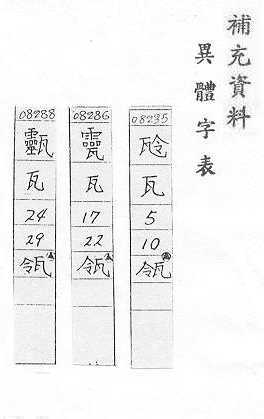 補充資料
異體字表
08235
瓦令
瓦
5
10
瓴
08236
瓦
17
22
瓴
08238
瓦
24
29
瓴